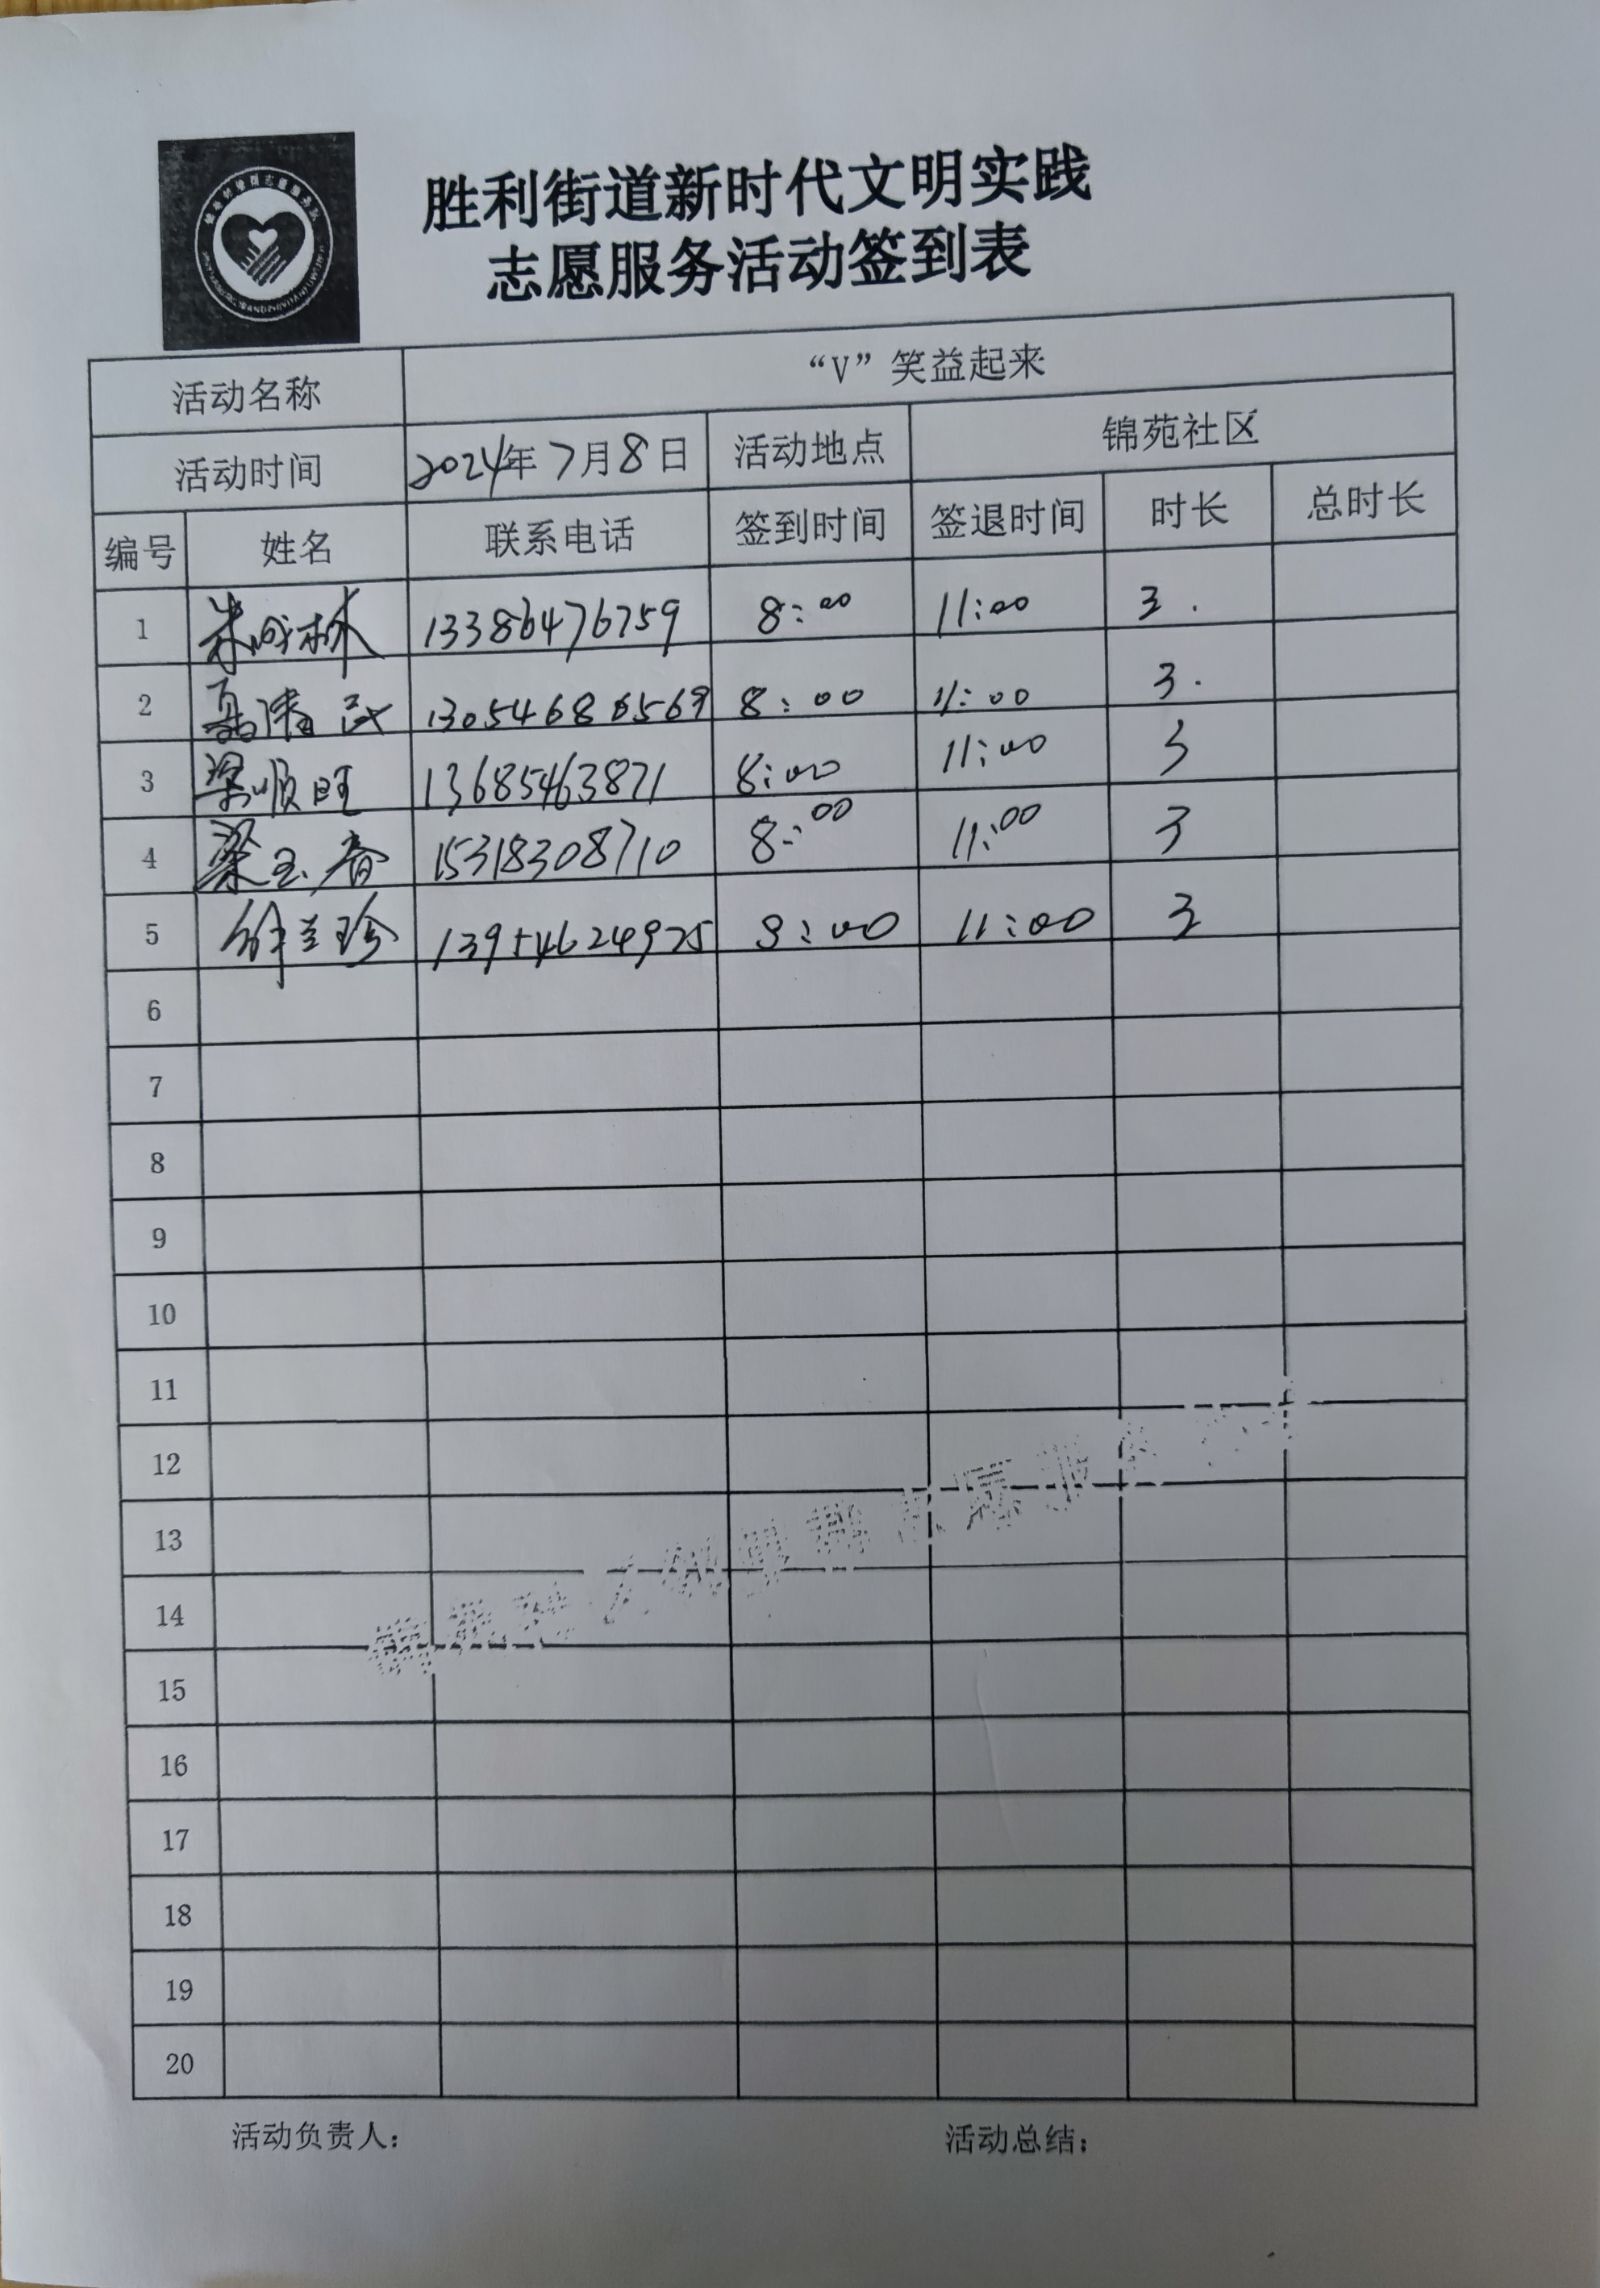 胜利街道新时代文明实践
志愿服务活动签到表
活动名称 “V”笑益起来
活动时间 2024年7月8日 活动地点 锦苑社区
编号 姓名 联系电话 签到时间 签退时间 时长 总时长
1 朱成林 13386476759 8:00 11:00 3.
2 13054686569 8:00 11:00 3.
3 梁顺旺 13685463871 8:00 11:00 3
4 梁玉春 15318308710 8:00 11:00 3
5 徐兰珍 13954624975 8:00 11:00 3
6
7
8
9
10
11
12
13
14
15
16
17
18
19
20
活动负责人：
活动总结：